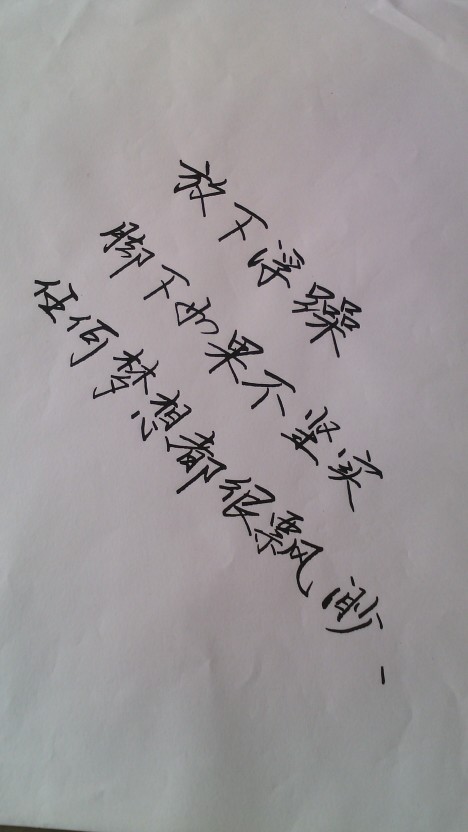 放下浮躁
脚下如果不坚实
任何梦想都很飘渺